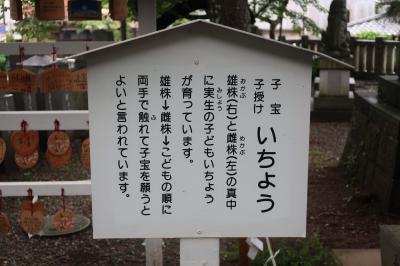 子宝
子授け
いちょう
雄株(右)と雌株(左)の真中
おかぶ
めかぶ
に実生の子どもいちょう
みしょう
が育っています。
雄株→雌株→こどもの順に
両手で触れて子宝を願うと
ふ
よいと言われています。